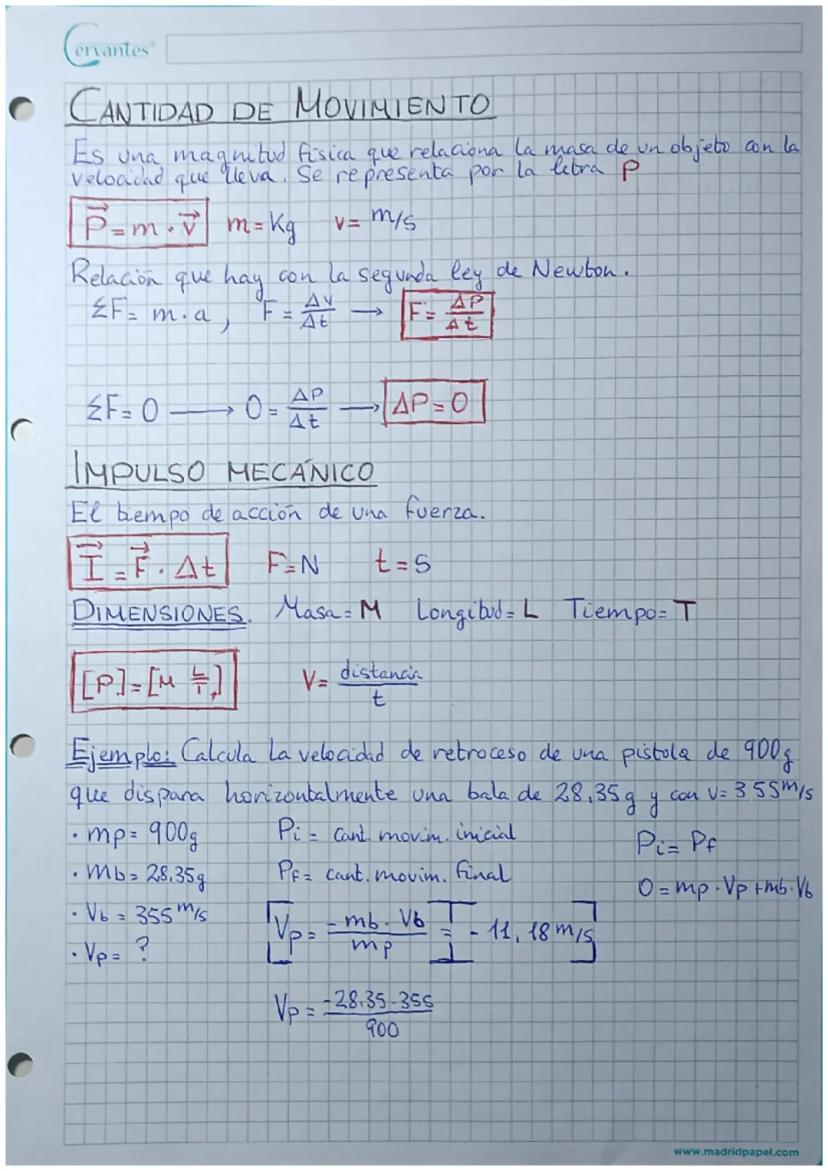 Cervantes
CANTIDAD DE MOVIMIENTO
Es una magnitud física que relaciona la masa de un objeto con la
velocidad que lleva. Se representa por la letra P
P⃗ = m · v⃗ m = Kg v = m/s
Relación que hay con la segunda ley de Newton.
ΣF = m · a, F = Δv/Δt → F = ΔP/Δt
ΣF = 0 → 0 = ΔP/Δt → ΔP = 0
IMPULSO MECÁNICO
El tiempo de acción de una fuerza.
I⃗ = F⃗ · Δt F = N t = s
DIMENSIONES. Masa = M Longitud = L Tiempo = T
[P] = [M L/T] V = distancia/t
Ejemplo: Calcula la velocidad de retroceso de una pistola de 900g
que dispara horizontalmente una bala de 28,35g y con v = 355 m/s
· mp = 900g Pi = Cant. movim. inicial Pi = Pf
· mb = 28,35g Pf = cant. movim. final 0 = mp · Vp + mb · Vb
· Vb = 355 m/s [Vp = -mb · Vb/mp] = -11,18 m/s]
· Vp = ?
Vp = -28,35 · 355/900
www.madridpapel.com